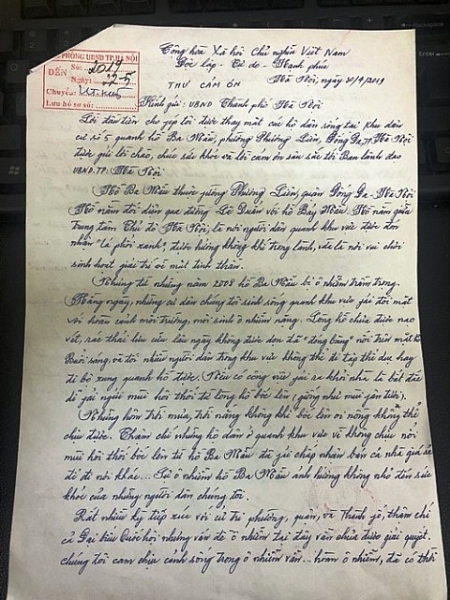 VĂN PHÒNG UBND TP. HÀ NỘI
ĐẾN
Số: 2019
Ngày: 22-5
Chuyển:
Lưu hồ sơ số:
Cộng hòa Xã hội Chủ nghĩa Việt Nam
Độc lập - Tự do - Hạnh phúc
Hà Nội, ngày 21/9/2019
THƯ CẢM ƠN
Kính gửi: UBND Thành phố Hà Nội
Lời đầu tiên cho phép tôi được thay mặt các hộ dân sống tại khu dân
cư số 5 quanh hồ Ba Mẫu, phường Phương Liên, Đống Đa, TP Hà Nội
được gửi lời chào, chúc sức khỏe và lời cảm ơn sâu sắc tới Ban lãnh đạo
UBND.TP. Hà Nội
Hồ Ba Mẫu thuộc phường Phương Liên, quận Đống Đa - Hà Nội
Hồ nằm đối diện qua đường Lê Duẩn với hồ Bảy Mẫu. Hồ nằm giữa
trung tâm Thủ đô Hà Nội, là nơi người dân quanh khu vực được đón
nhận "lá phổi xanh", được hưởng không khí trong lành, và là nơi vui chơi
sinh hoạt giải trí về mặt tinh thần.
Nhưng từ những năm 2008 hồ Ba Mẫu bị ô nhiễm trầm trọng.
Hàng ngày, những cư dân chúng tôi sinh sống quanh khu vực phải đối mặt
với hoàn cảnh môi trường, môi sinh ô nhiễm nặng. Lòng hồ chưa được nạo
vét, rác thải lưu cữu lâu ngày không được dọn đã "đóng băng" nổi trên mặt hồ
Buổi sáng, và tối nhiều người dân trong khu vực không thể đi tập thể dục hay
đi bộ xung quanh hồ được. Nếu có công việc phải ra khỏi nhà là bắt đầu
đi phải ngửi mùi hôi thối từ lòng hồ bốc lên (giống như mùi
Những hôm trời mưa, trời nắng không khí bốc lên oi nồng không thể
chịu được. Thậm chí những hộ dân ở quanh khu vực vì không chịu nổi
mùi hôi thối bốc lên từ hồ Ba Mẫu đã phải chấp nhận bán cả nhà giá rẻ
để đi nơi khác... Sự ô nhiễm hồ Ba Mẫu ảnh hưởng không nhỏ đến sức
khỏe của những người dân chúng tôi.
Rất nhiều kỳ tiếp xúc với cử tri phường, quận, và Thành phố, thậm chí
cả Đại biểu Quốc hội nhưng vấn đề ô nhiễm tại đây vẫn chưa được giải quyết.
chúng tôi cam chịu cảnh sống trong ô nhiễm vẫn... hoàn ô nhiễm, đã có thời